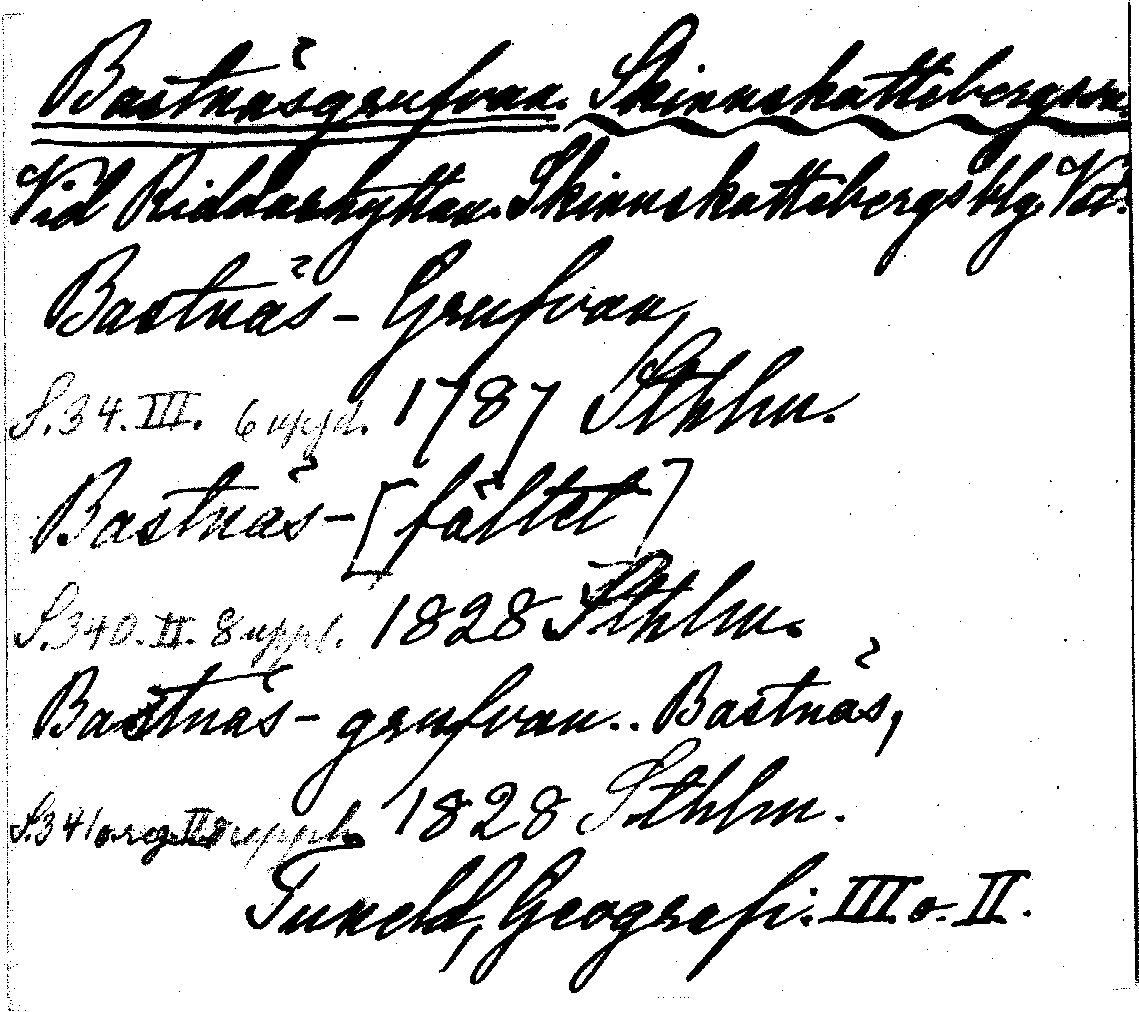 Bastnäsgrufvan. Skinnskattebergssn.
Vid Riddarhyttan. Skinnskattebergs blg. Vstm.
Bastnäs - Grufvan,
S. 34. III. 6 uppl. 1787 Sthlm.
Bastnäs - [fältet]
S. 340. II. 8 uppl. 1828 Sthlm.
Bastnäs - grufvan.. Bastnäs,
S. 341 o. reg. II 8 uppl. 1828 Sthlm.
Tuneld, Geografi. III o. II.